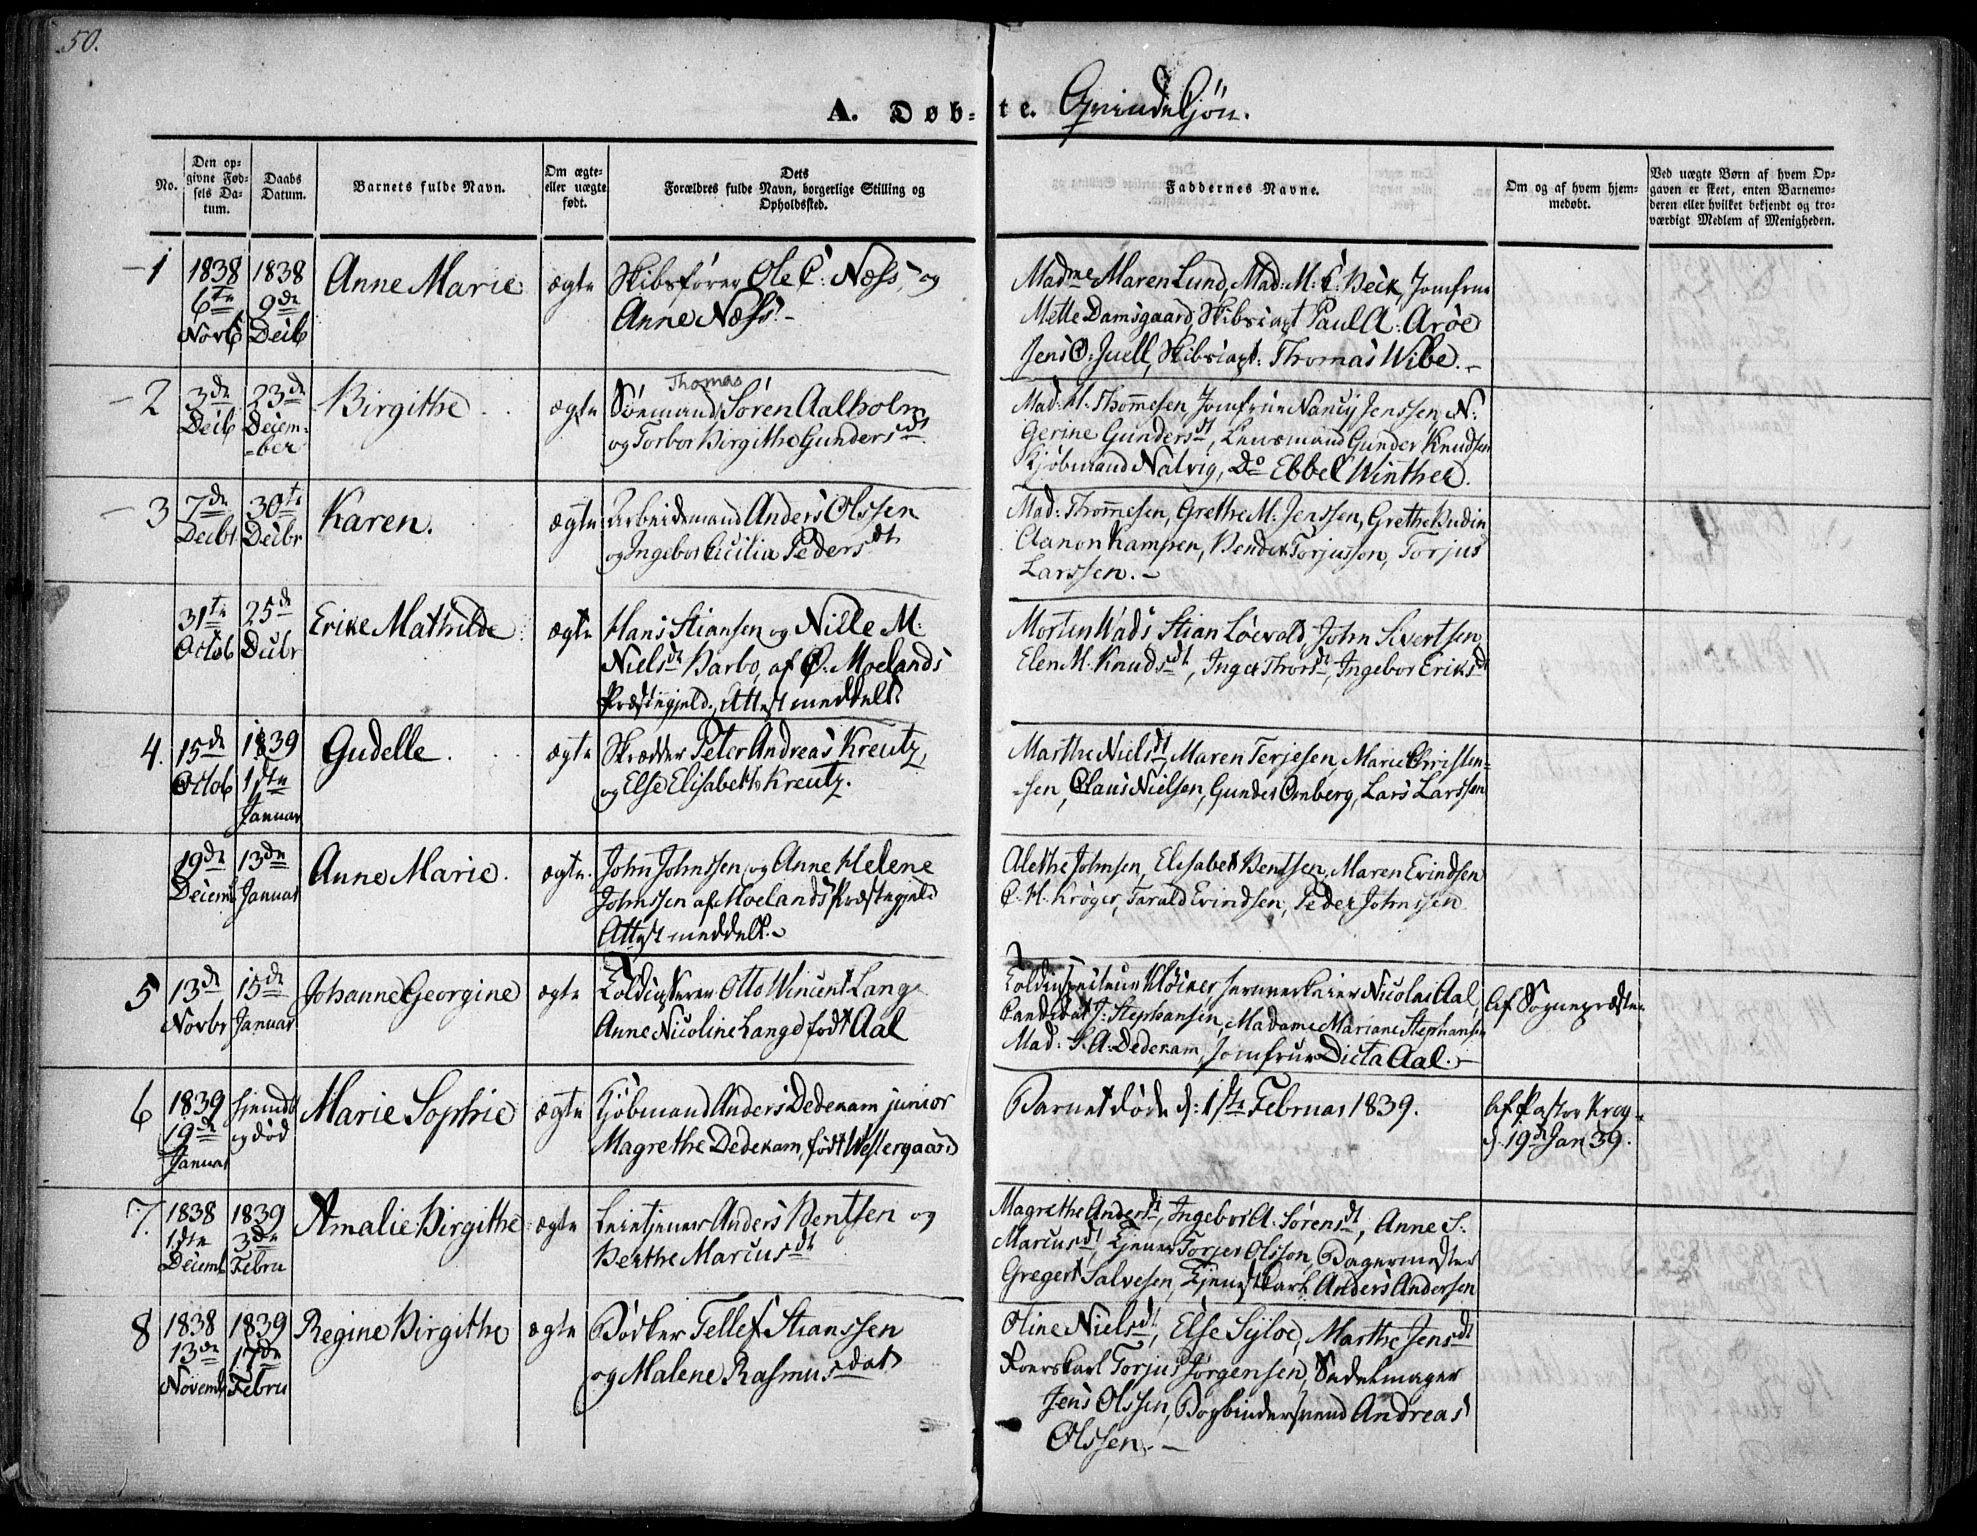 50.
A. Døb-te. Qvindekjøn.
No.
Den op-
givne Fød-
sels Da-
tum.
Daabs
Datum.
Barnets fulde Navn.
Om ægte
eller uægte
født.
Dets
Forældres fulde Navn, borgerlige Stilling og
Opholdssted.
Faddernes Navne.
Om og af hvem hjem-
medøbt.
Ved uægte Børn af hvem Op-
gaven er skeet, enten Barnemo-
deren eller hvilket bekjendt og tro-
værdigt Medlem af Menigheden.
1
1838
6te
Novb
1838
9de
Decb
Anne Marie
ægte
Skibsfører Ole C: Næss, og
Anne Næss.
Madme Maren Lund, Mad: M: C: Beck, Jomfrue
Mette Damsgaard, Skibscapt Paul A: Aröe
Jens O: Juell, Skibscapt: Thomas Wibe.
2
3de
Decb
23de
Decem-
-ber
Birgithe
ægte
Thomas
Sömand Sören Aalholm
og Torbor Birgithe Gundersdt
Mad: H. Thommesen Jomfrue Nancy Jenssen, N:
Gerine Gundersdt, Lensmand Gunder Knudsen
Kjöbmand Nalvig, Do Ebbel Winther.
3
7de
Decbr
30te
Decbr
Karen.
ægte
Arbeidsmand Anders Olssen
og Ingebor Cicilia Pedersdt
Mad: Thommesen, Grethe M: Jenssen, Grethe Budin
Aanon Kampen, Bendix Torjussson, Torjus
Larssen.
31te
Octob
25de
Decbr
Erike Mathilde
ægte
Hans Stiansen og Nille M:
Nielsdt Barbo, af Ö: Moelands
Præstegjeld, Attest meddelt.
Morten Wads Stian Löevold, John Sivertsen
Elen M. Knudsdt, Inger Thorsdt, Ingebor Eriksdt
4.
15de
Octob
1839
1ste
Januar
Gudelle.
ægte
Skrædder Peter Andreas Kreutz,
og Else Elisabeth Kreutz.
Marthe Nielsdt Maren Terjesen, Marie Christen-
-sen, Claus Nielsen, Gunder Omberg, Lars Larssen
19de
Decemb
13de
Januar
Anne Marie.
ægte.
John Johnssen, og Anne Helene
Johnssen af Moelands Præstegjeld
Attest meddelt.
Alethe Johnsen, Elisabet Bentsen, Maren Evindsen
C. H. Kröger, Tarald Evindsen, Peder Johnssen
5
13de
Novbr
15de
Januar
Johanne Georgine
ægte
Toldcasserer Otto Wincent Lange
Anne Nicoline Lange født Aal
Toldinspecteur Klöcker Jernværkseier Nicolai Aal,
Candidat J: Stephansen, Madame Mariane Stephansen
Mad: S. A: Dedekam, Jomfrue Dicta Aal.
Af Sognepræsten
6
1839
19de
Januar
hjemdb
og död
Marie Sophie
ægte
Kjöbmand Anders Dedekam junior
Magrethe Dedekam, født Westergaard
Barnet døde d: 1ste Februar 1839.
Af Pastor Krog
d. 19de Jan 39.
7.
1838
1ste
Decemb
1839
3de
Febru
Amalie Birgithe
ægte
Leietjener Anders Bentsen og
Berthe Marcusdt
Magrethe Andersdt, Ingebor A. Sörensdt, Anne S.
Marcusdt, Tjener Torjer Olsson, Bagermester
Gregert Salvesen, Tjenestkarl Anders Andersen
8
1838
13de
Novemb
1839
17de
Febru
Regine Birgithe
ægte
Bödker Tellef Stianssen
og Malene Rasmusdat
Oline Nielsdt, Else Syloe, Marthe Jensdt
Roerskarl Torjus Jörgensen, Sadelmager
Jens Olssen, Bogbindersvend Andreas
Olssen.